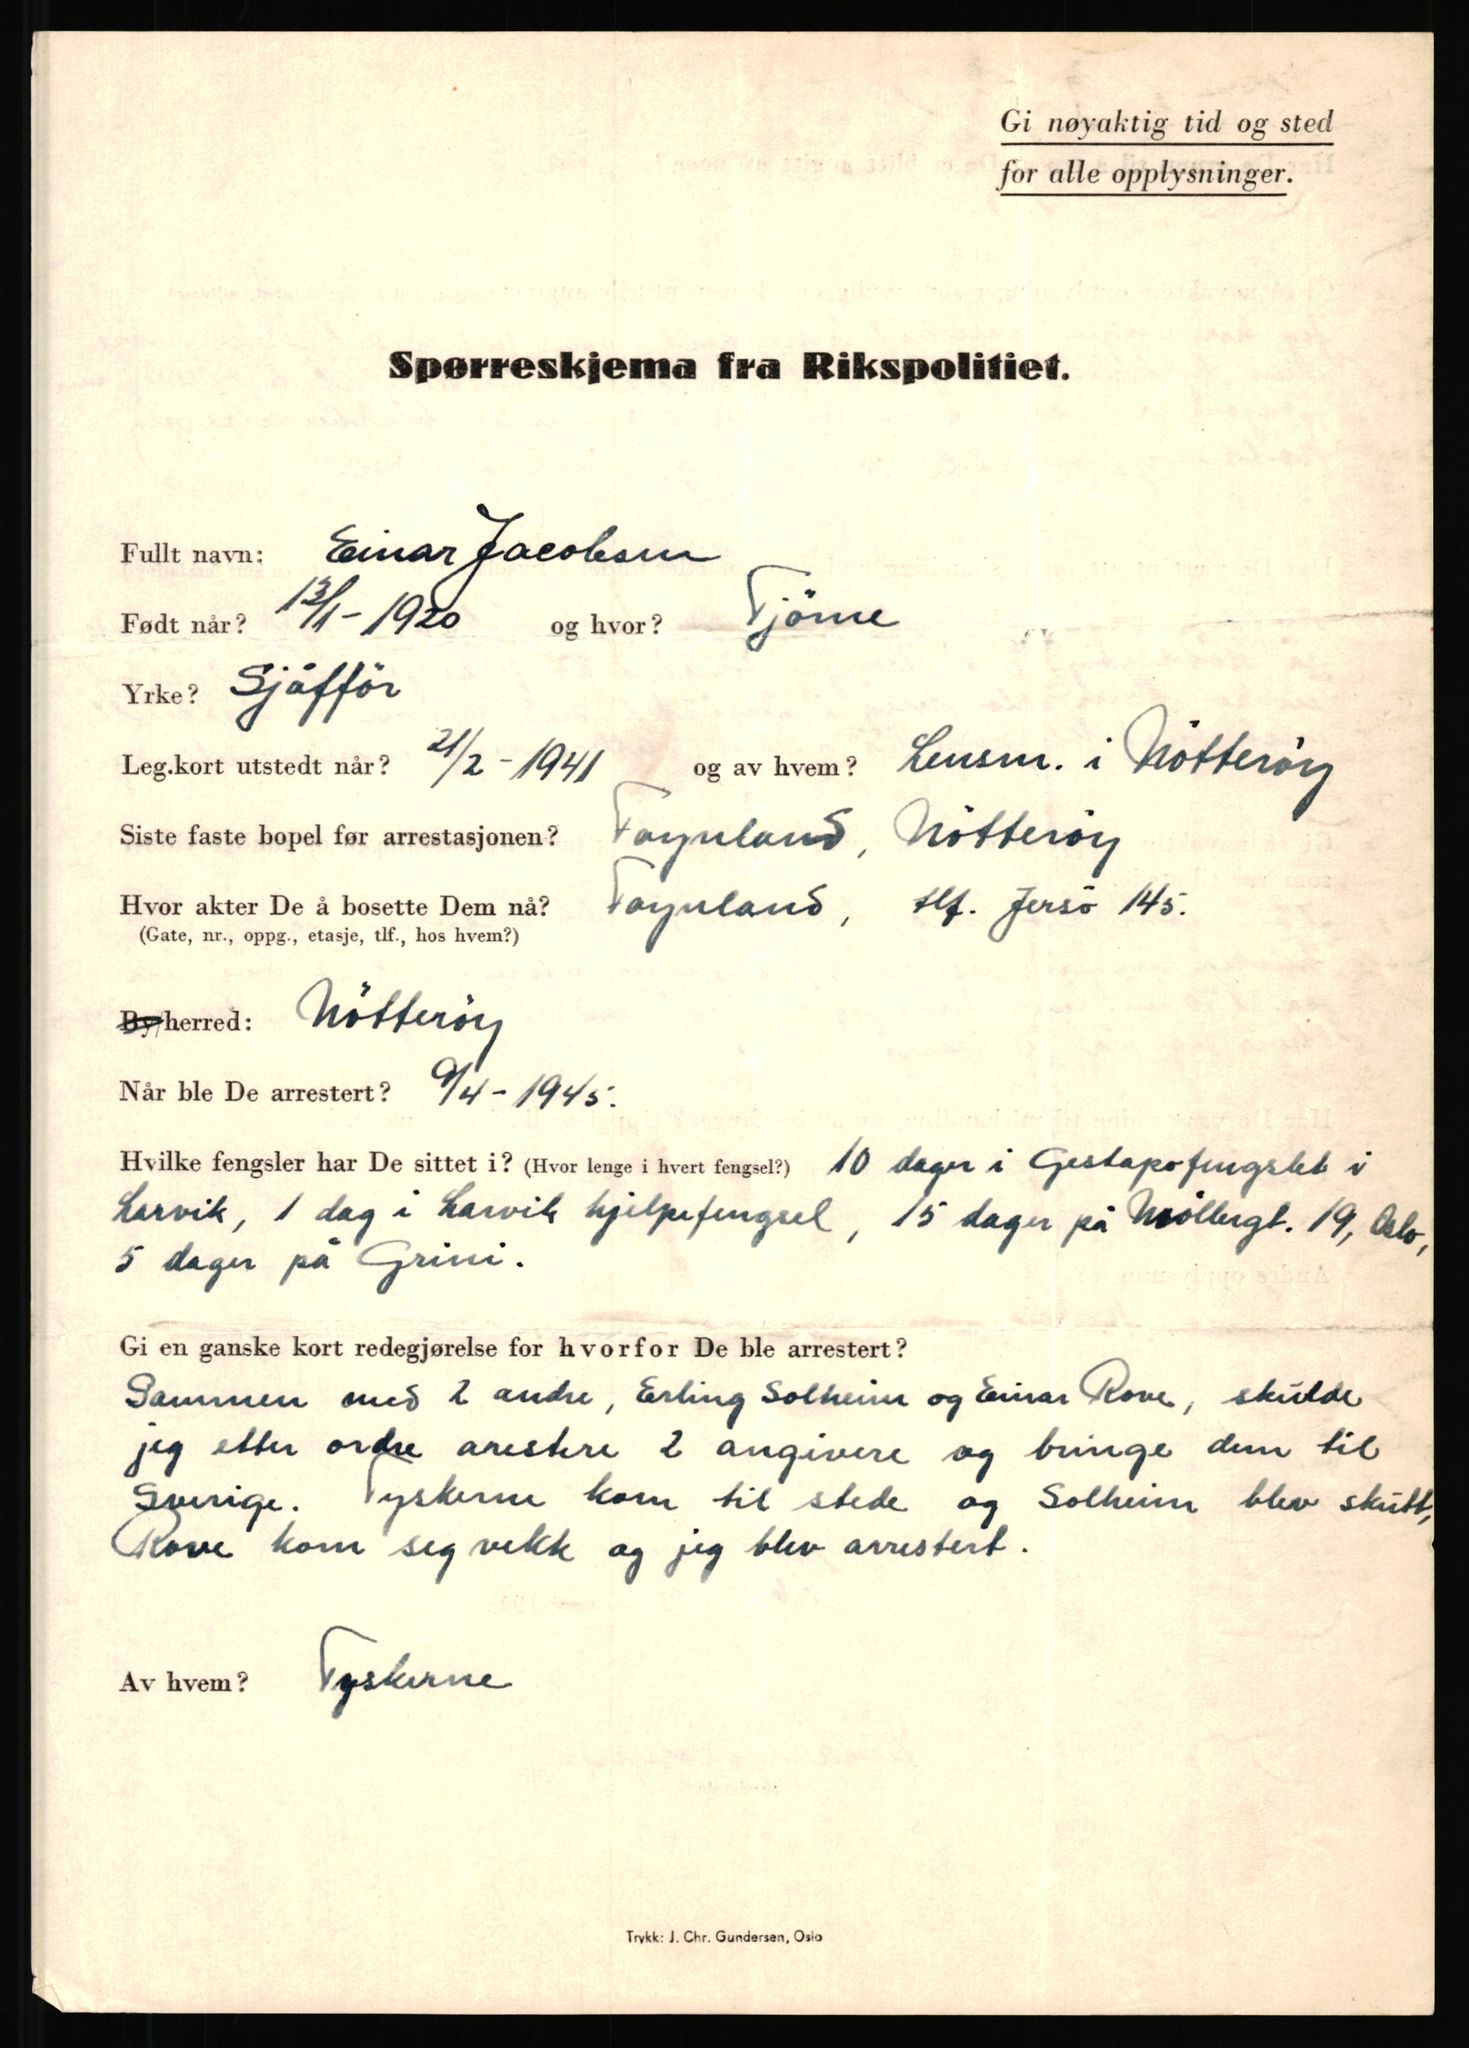 Gi nøyaktig tid og sted
for alle opplysninger.
Spørreskjema fra Rikspolitiet.
Fullt navn: Einar Jacobsen
Født når? 13/1-1920 og hvor? Tjöme
Yrke? Sjåfför
Leg.kort utstedt når? 21/2-1941 og av hvem? Lensm. i Nötteröy
Siste faste bopel før arrestasjonen? Föynland, Nötteröy
Hvor akter De å bosette Dem nå? Föynland, tlf. Jersö 145.
(Gate, nr., oppg., etasje, tlf., hos hvem?)
By/herred: Nötteröy
Når ble De arrestert? 9/4-1945.
Hvilke fengsler har De sittet i? (Hvor lenge i hvert fengsel?) 10 dager i Gestapofengslet i
Larvik, 1 dag i Larvik hjelpefengsel, 15 dager på Möllergt. 19, Oslo,
5 dager på Grini.
Gi en ganske kort redegjørelse for hvorfor De ble arrestert?
Sammen med 2 andre, Erling Solheim og Einar Rove, skulde
jeg etter ordre arestere 2 angivere og bringe dem til
Sverige. Tyskerne kom til stede og Solheim blev skutt,
Rove kom seg vekk og jeg blev arrestert.
Av hvem? Tyskerne
Trykk: J. Chr. Gundersen, Oslo